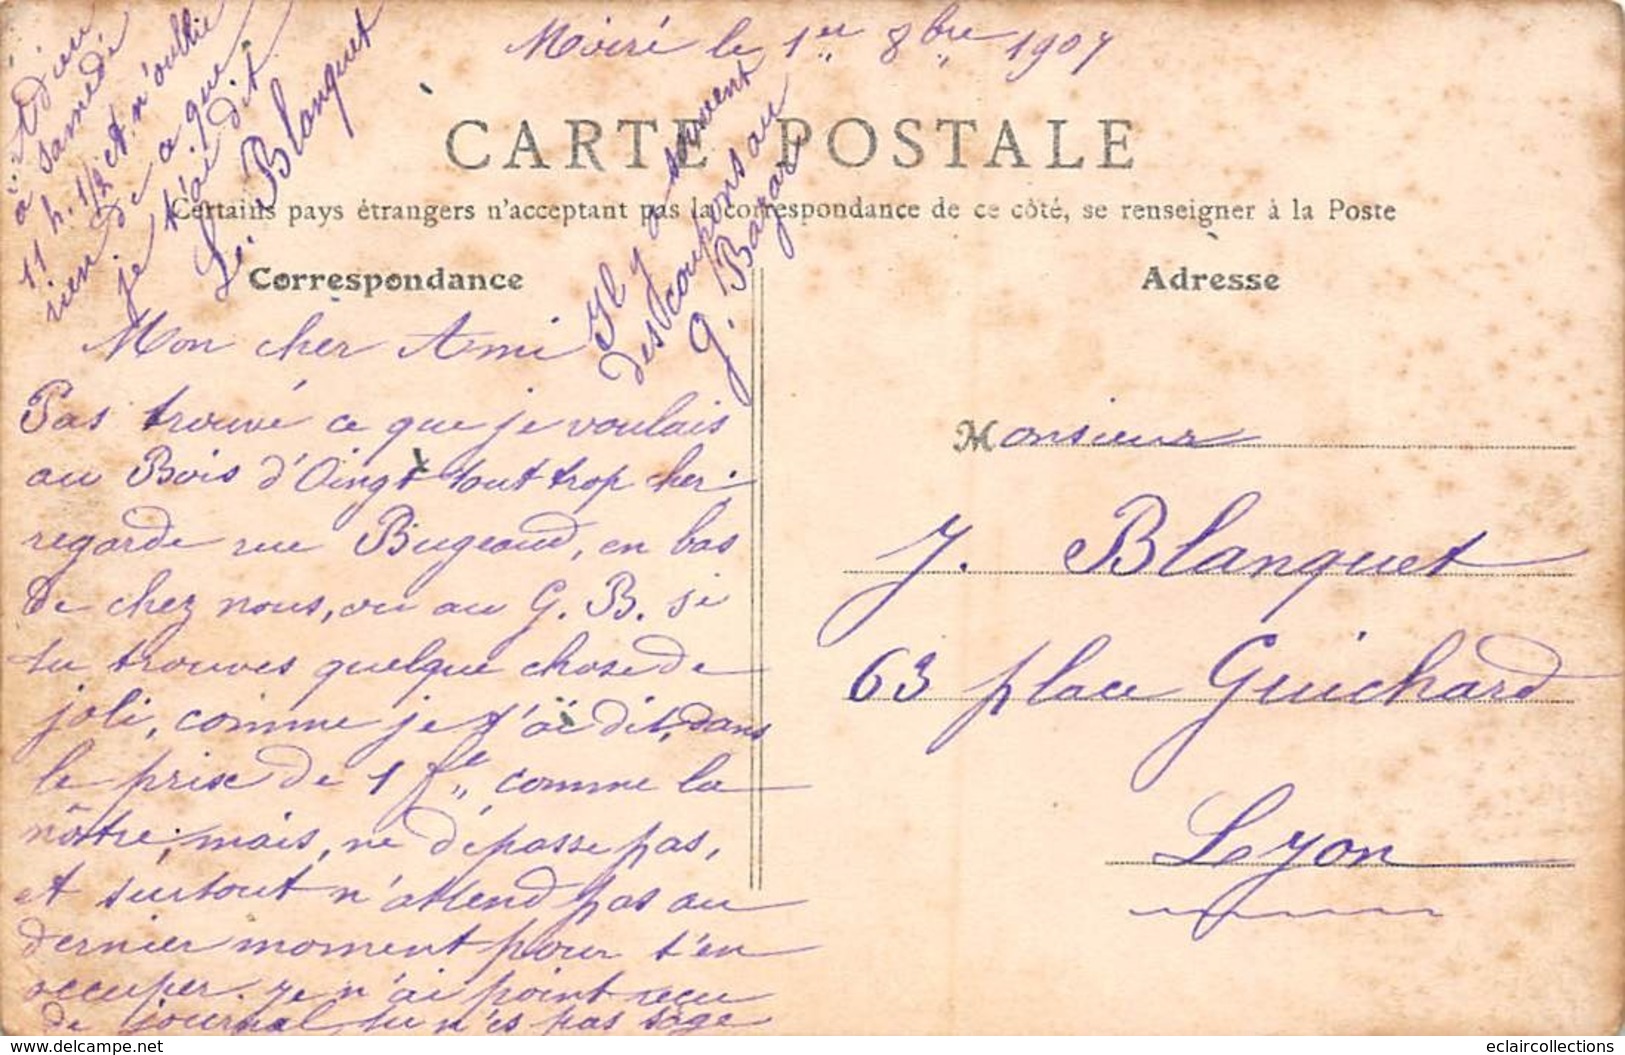 Moiré le 1er 8bre 1907
CARTE POSTALE
Certains pays étrangers n'acceptant pas la correspondance de ce côté, se renseigner à la Poste
Correspondance
Adresse
Mon cher Ami
Pas trouvé ce que je voulais
au Bois d'Oingt tout trop cher.
regarde rue Bugeaud, en bas
de chez nous, ou au G. B. si
tu trouves quelque chose de
joli, comme je t'ai dit, dans
le prix de 1 f comme la
nôtre, mais, ne dépasse pas,
et surtout n'attend pas au
dernier moment pour t'en
occuper. Je n'ai point reçu
de journal tu n'es pas sage
Adieu
à samedi
11 h. 1/2 et n'oublie
rien de ce que
je t'ai dit.
Le. Blanquet
Il y a souvent
des coupons au
G. Bazar
Monsieur
J. Blanquet
63 place Guichard
Lyon
www.delcampe.net
eclaircollections